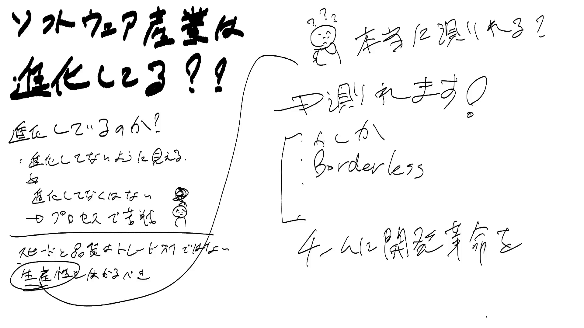 ソフトウェア産業は
進化してる??
進化しているのか?
・進化してないように見える
進化してなくはない
→プロセスで苦戦
スピードと品質はトレードオフではない
生産性をはかるべき
???
本当に測れる?
→測れます!
よしか
Borderless
チームに開発革命を